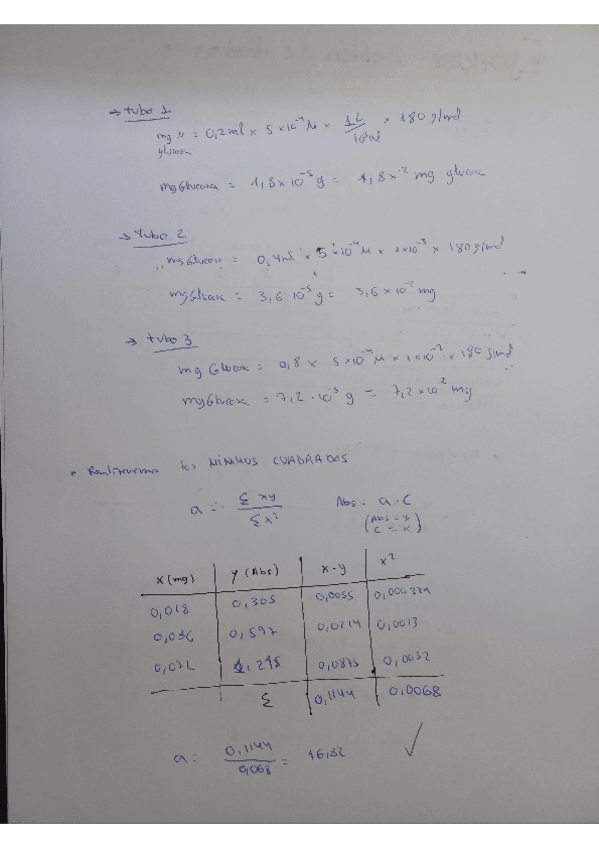 → tubo 1
mg glucosa = 0,2ml × 5×10⁻⁴ M × 1L/10³ml × 180 g/mol
mgGlucosa = 1,8×10⁻⁵ g = 1,8×⁻² mg glucosa
→ tubo 2
mgGlucosa = 0,4ml × 5×10⁻⁴ M × 1×10⁻³ × 180 g/mol
mgGlucosa = 3,6·10⁻⁵ g = 3,6×10⁻² mg
→ tubo 3
mg Glucosa = 0,8 × 5×10⁻⁴ M × 1×10⁻³ × 180 g/mol
mgGlucosa = 7,2·10⁻⁵ g = 7,2×10⁻² mg
• los MÍNIMOS CUADRADOS
a = Σ xy / Σ x² Abs = a·C
(Abs = y
C = x)
x (mg) y (Abs) x·y x²
0,018 0,305 0,0055 0,000324
0,036 0,597 0,0214 0,0013
0,072 1,215 0,0875 0,0052
Σ 0,1144 0,0068
a = 0,1144 / 0,068 = 16,82 ✓